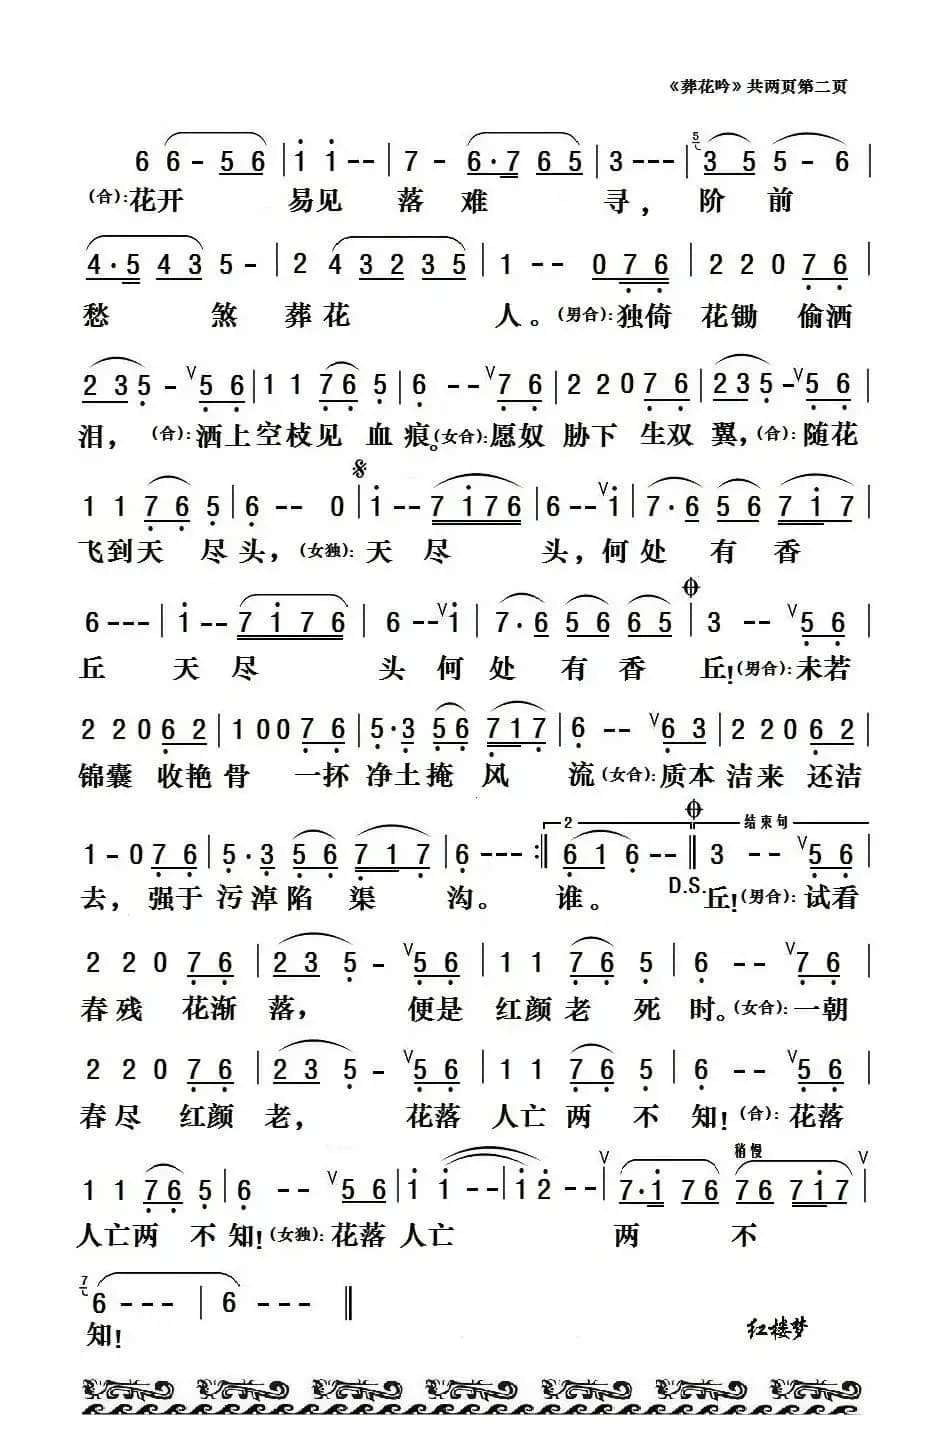 《葬花吟》共两页第二页
6 6 - 5 6 | 1 1 - - | 7 - 6 · 7 6 5 | 3 - - - | 5 3 5 5 - 6 |
(合):花开 易见 落 难 寻， 阶 前
4 · 5 4 3 5 - | 2 4 3 2 3 5 | 1 - - 0 7 6 | 2 2 0 7 6 |
愁 煞 葬 花 人。(男合):独倚 花锄 偷洒
2 3 5 - V 5 6 | 1 1 7 6 5 | 6 - - V 7 6 | 2 2 0 7 6 | 2 3 5 - V 5 6 |
泪， (合):洒上空枝见 血痕。(女合):愿奴 胁下 生双 翼，(合):随花
1 1 7 6 5 | 6 - - 0 | 1 - - 7 1 7 6 | 6 - - V 1 | 7 · 6 5 6 7 1 7 |
飞到天 尽 头，(女独):天尽 头，何处 有 香
6 - - - | 1 - - 7 1 7 6 | 6 - - V 1 | 7 · 6 5 6 6 5 | 3 - - V 5 6 |
丘 天 尽 头 何 处 有 香 丘!(男合):未若
2 2 0 6 2 | 1 0 0 7 6 | 5 · 3 5 6 7 1 7 | 6 - - V 6 3 | 2 2 0 6 2 |
锦囊 收艳骨 一抔 净土掩 风 流(女合):质本 洁来 还洁
2 结束句
1 - 0 7 6 | 5 · 3 5 6 7 1 7 | 6 - - - :‖ 6 1 6 - - ‖ 3 - - V 5 6 |
D.S.
去， 强于 污淖陷 渠 沟。 谁。 丘!(男合):试看
2 2 0 7 6 | 2 3 5 - V 5 6 | 1 1 7 6 5 | 6 - - V 7 6 |
春残 花渐 落， 便是 红颜老 死时。(女合):一朝
2 2 0 7 6 | 2 3 5 - V 5 6 | 1 1 7 6 5 | 6 - - V 5 6 |
春尽 红颜 老， 花落 人亡 两 不 知!(合):花落
稍慢
1 1 7 6 5 | 6 - - V 5 6 | 1 1 - - | 1 2 - - V | 7 · 1 7 6 7 6 7 1 7 V |
人亡两 不 知!(女独):花落 人亡 两 不
7 6 - - - | 6 - - - ‖
知!
红楼梦